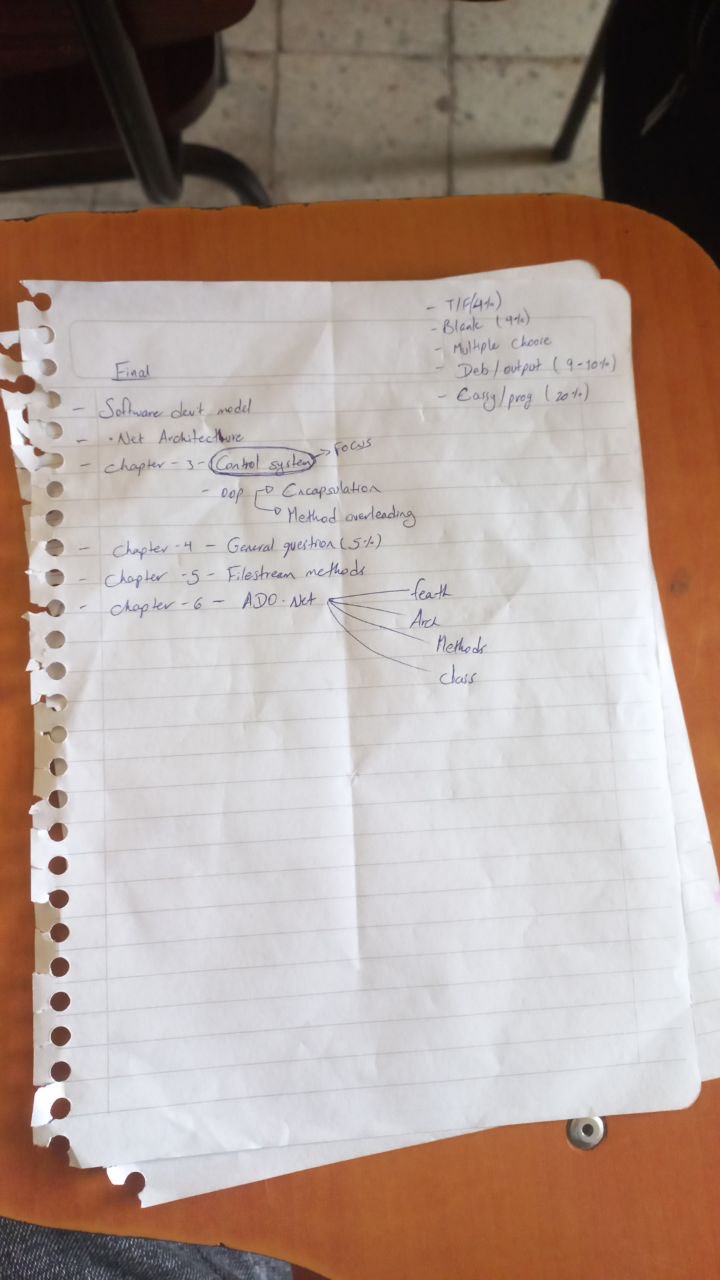 - T/F(4%)
- Blank (4%)
- Multiple choose
- Deb/output (9-10%)
- Eassy/prog (20%)
Final
- Software dev't model
- .Net Architecture
- chapter - 3 - Control system → Focus
- OOP → Encapsulation
→ Method overleading
- chapter - 4 - General question (5%)
- chapter - 5 - Filestream methods
- chapter - 6 - ADO.Net
Arch
Methods
class